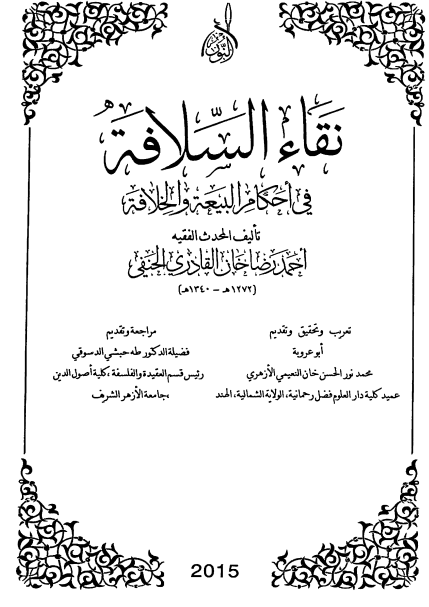 نقاء السلافة
في أحكام البيعة والخلافة
تأليف المحدث الفقيه
أحمد رضا خان القادري الحنفي
(١٢٧٢هـ - ١٣٤٠هـ)
تعريب وتحقيق وتقديم
أبو عروبة
محمد نور الحسن خان النعيمي الأزهري
عميد كلية دار العلوم فضل رحمانية، الولاية الشمالية، الهند
مراجعة وتقديم
فضيلة الدكتور طه حبشي الدسوقي
رئيس قسم العقيدة والفلسفة، كلية أصول الدين
،جامعة الأزهر الشريف
2015